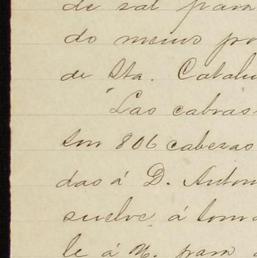 de sal para
do menos po
de Sta. Catali
"Las cabras
son 806 cabezas
das á D. Anton
suelve á tom
le á M. para